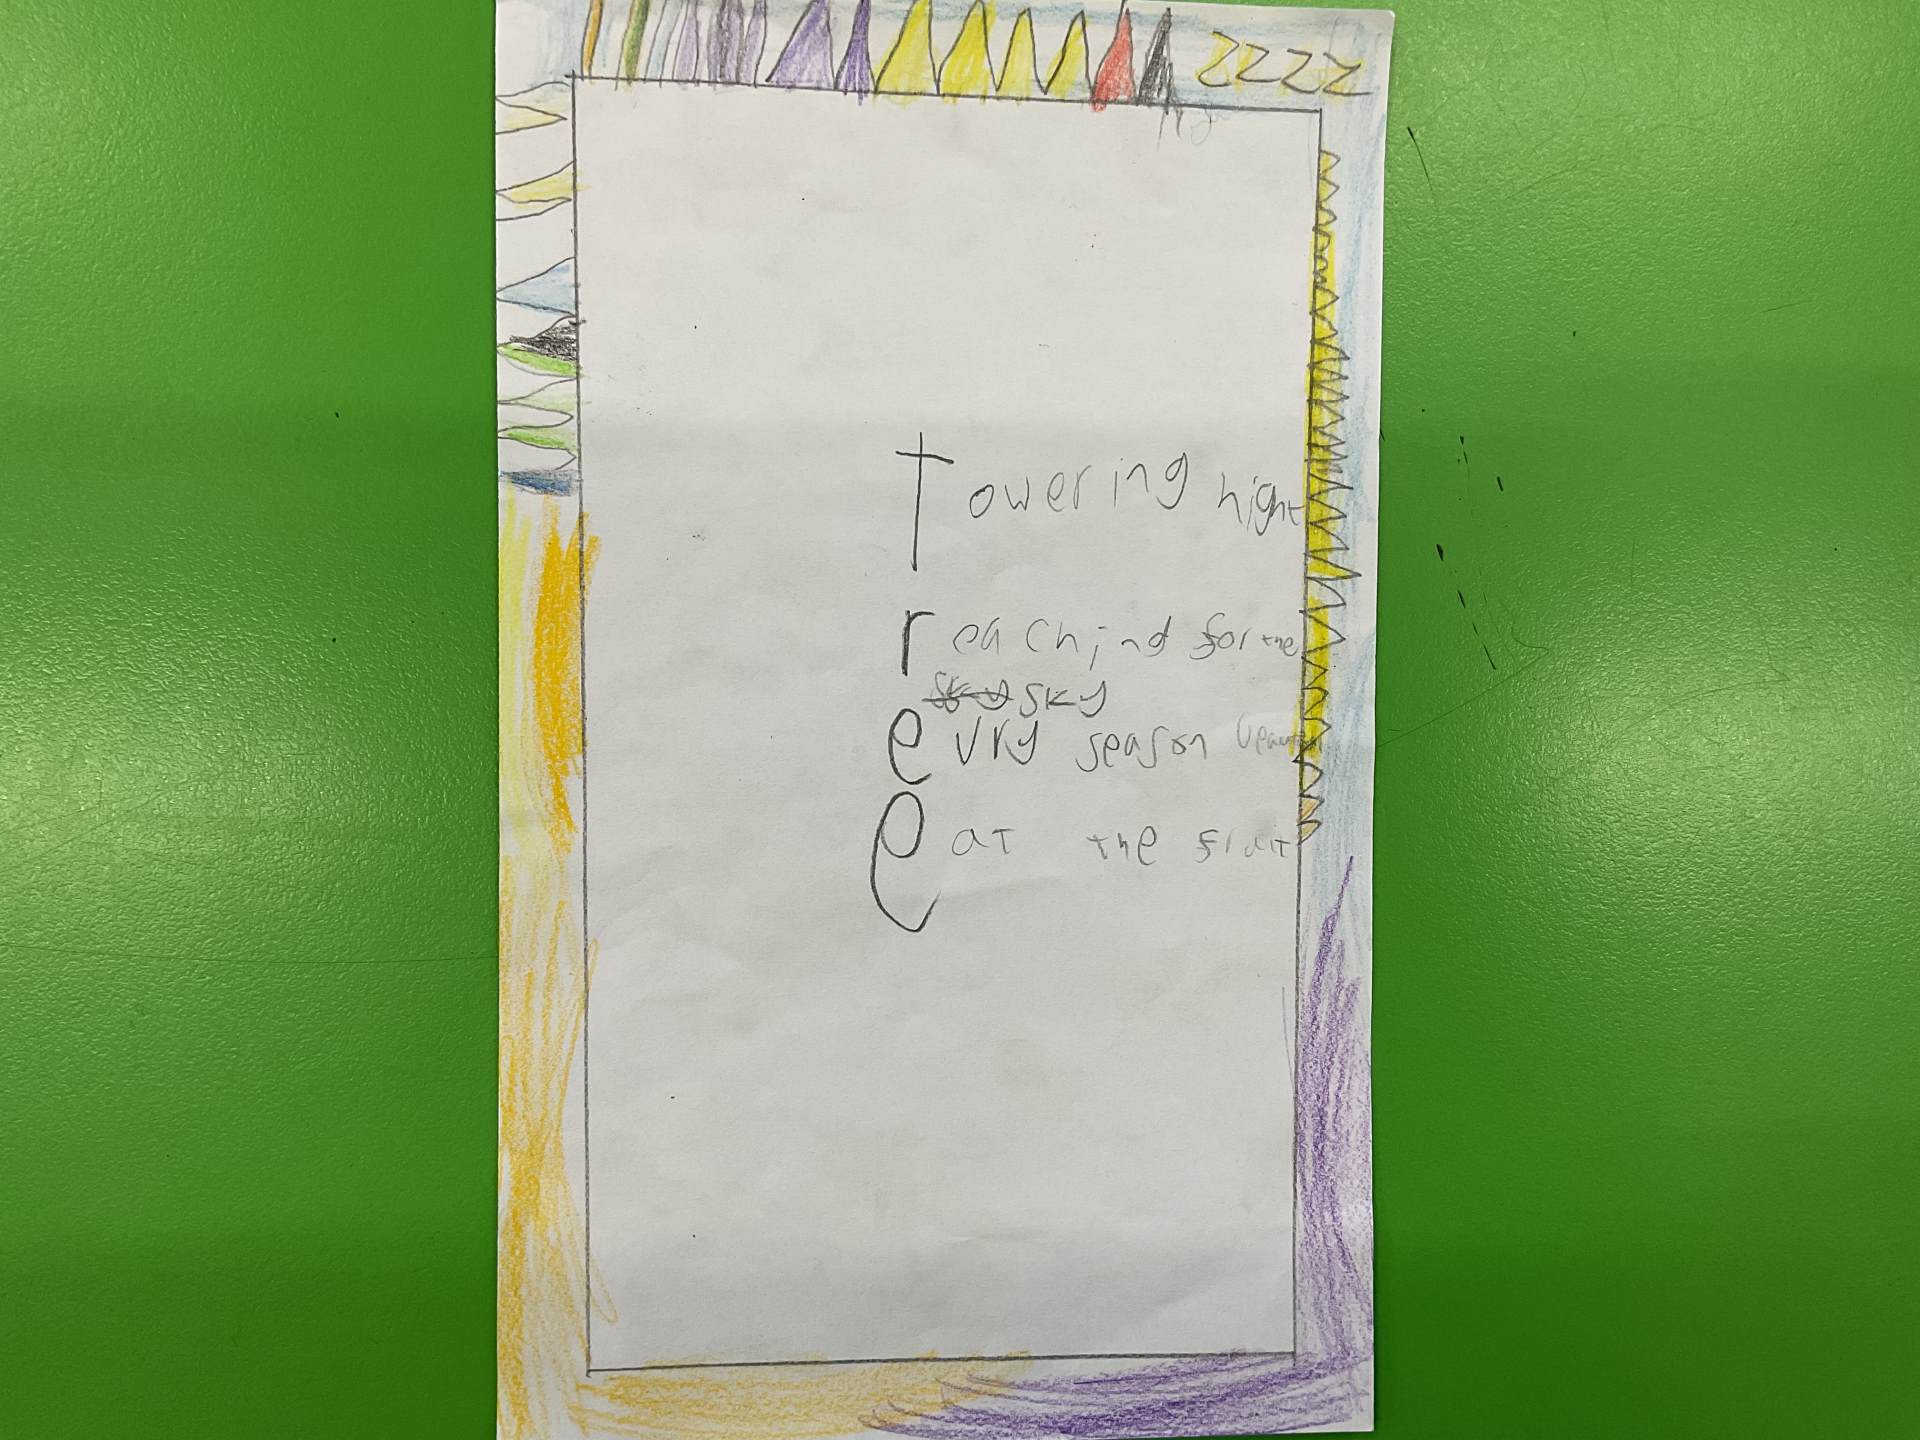 zzzz
Towering hight
reaching for the
sky sky
evry season
eat the fruit